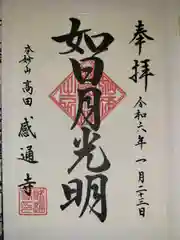 奉拝
令和六年一月二十三日
如日月光明
本妙山
高田
感通寺